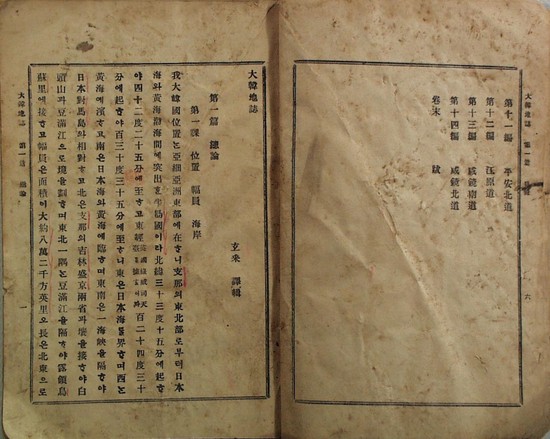 大韓地誌 第一 六
第十一編 平安北道
第十二編 江原道
第十三編 咸鏡南道
第十四編 咸鏡北道
卷末 跋
大韓地誌
玄采 譯輯
第一篇 總論
第一課 位置 幅員 海岸
我大韓國位置ᄂᆞᆫ亞細亞洲東部에在ᄒᆞ니支那의東北部로부터日本
海와黃海渤海間에突出ᄒᆞᆫ半島國이라北緯三十三度十五分에起ᄒᆞ
야四十二度二十五分에至ᄒᆞ고東經英國綠威司天百二十四度三十
分에起ᄒᆞ야百三十度三十五分에至ᄒᆞ니東은日本海를界ᄒᆞ며西ᄂᆞᆫ
黃海에濱ᄒᆞ고南은日本海와黃海에臨ᄒᆞ며東南은一海峽을隔ᄒᆞ야
日本對馬島와相對ᄒᆞ고北은支那의吉林盛京兩省과壤을接ᄒᆞ야白
頭山과豆滿江으로境을劃ᄒᆞ며東北一隅ᄂᆞᆫ豆滿江을隔ᄒᆞ야露領烏
蘇里에接ᄒᆞ고幅員은面積이大約八萬二千方英里오長은北東으로
大韓地誌 第一 總論 一